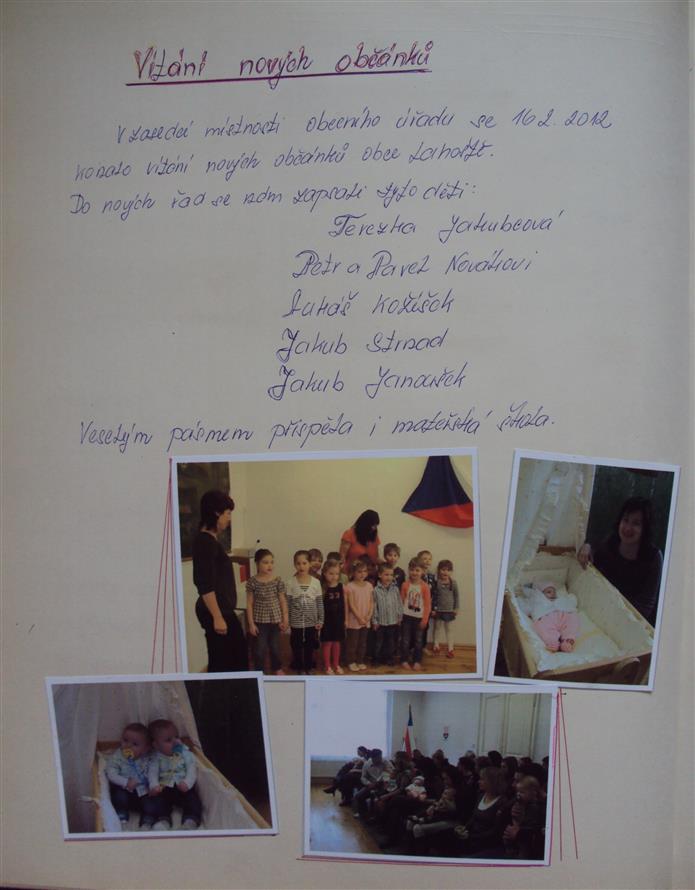 Vítání nových občánků
V zasedací místnosti obecního úřadu se 16.2. 2012
konalo vítání nových občánků obce Lahošť.
Do nových řad se nám zapsali tyto děti:
Terezka Jakubcová
Petr a Pavel Novákovi
Lukáš Kožíšek
Jakub Strnad
Jakub Janoušek
Veselým pásmem přispěla i mateřská škola.